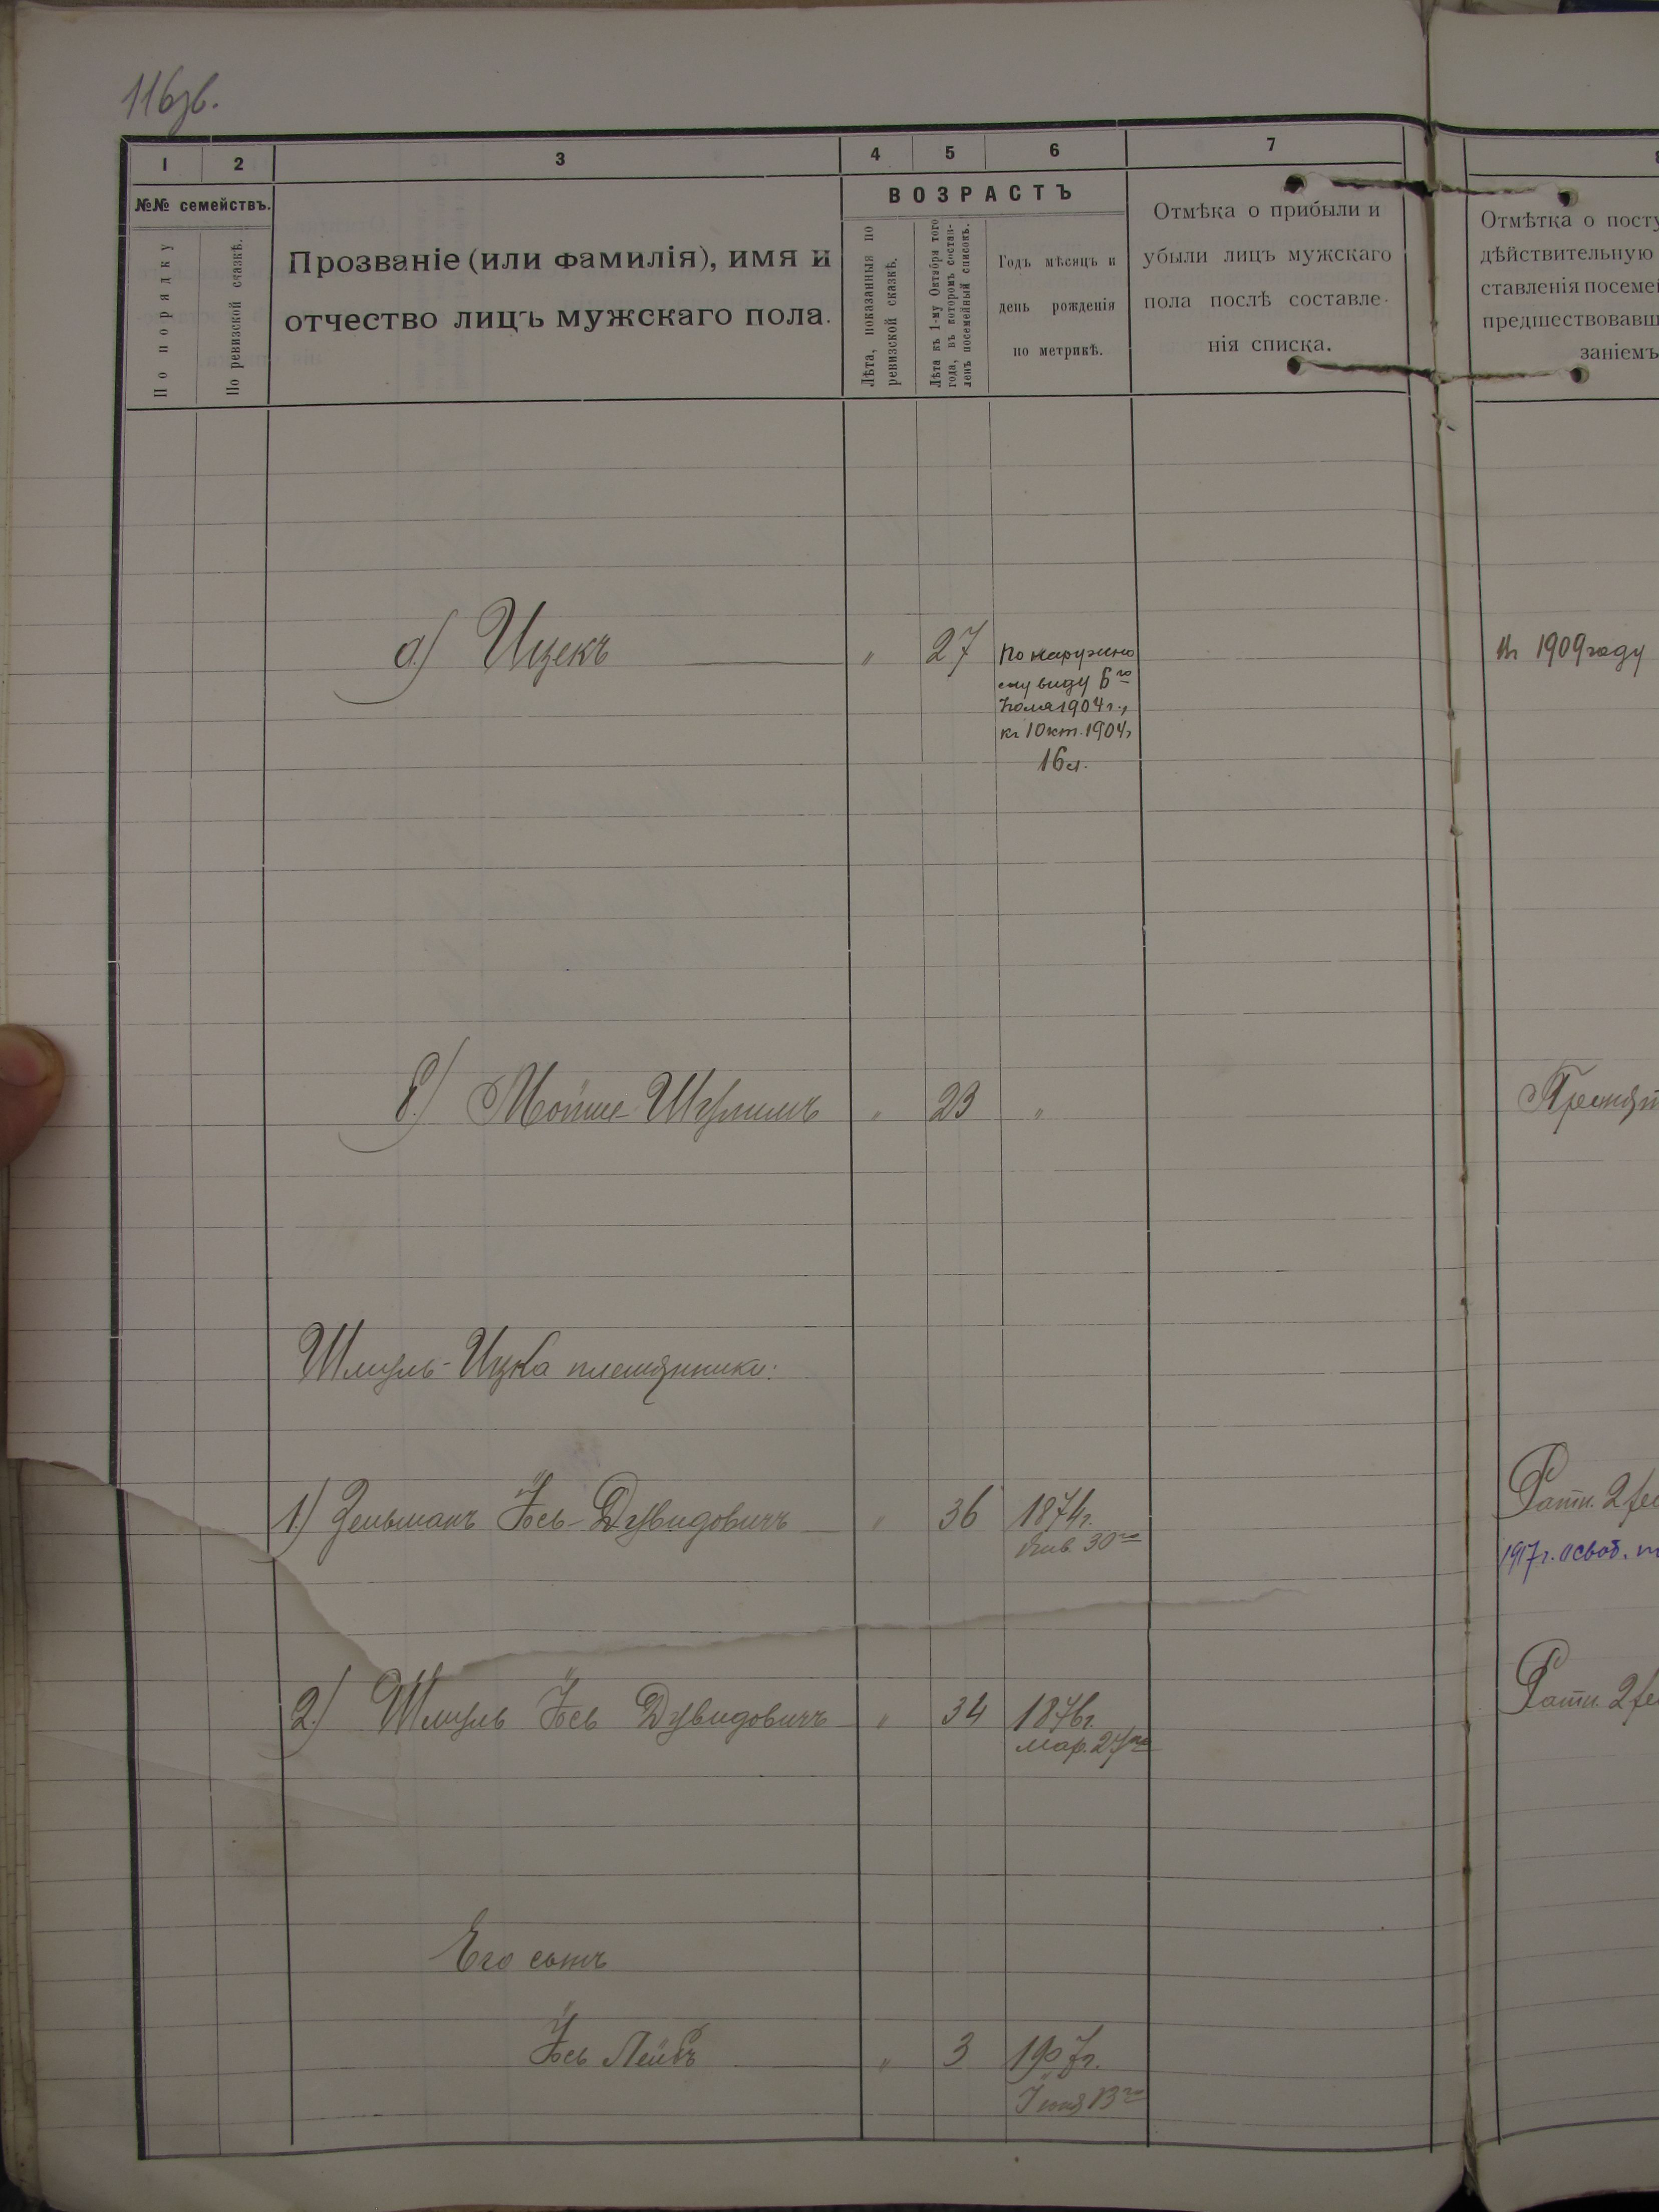 116зв.
1 2 3 4 5 6 7
№№ семействъ.
По порядку
По ревизской сказкѣ.
Прозваніе (или фамилія), имя и
отчество лицъ мужскаго пола.
ВОЗРАСТЪ
Лѣта, показанныя по
ревизской сказкѣ.
Лѣта къ 1-му Октября того
года, въ которомъ состав-
ленъ посемейный списокъ.
Годъ мѣсяцъ и
день рожденія
по метрикѣ.
Отмѣка о прибыли и
убыли лицъ мужскаго
пола послѣ составле-
нія списка.
Отмѣтка о посту
дѣйствительную
ставленія посемей
предшествовавш
заніемъ
а) Ицекъ " 27 По наружно
му виду 6го
Іюля 1904 г.,
къ 1 Окт. 1904г
16 л.
1909 году
б.) Мойше-Шулимъ " 23 "
Шмуль-Ицка племянники:
1.) Зельманъ Іось-Дувидовичъ " 36 1874г.
Янв. 30го
Ратн. 2
1917 г. освоб.
2.) Шмуль Іось Дувидовичъ " 34 1876г.
Мар. 27го
Ратн. 2
Его сынъ
Іось Лейбъ " 3 1907г.
Іюня 13го